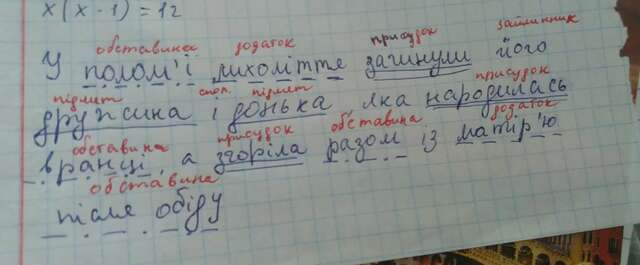 x(x-1)=12
обставина додаток присудок займенник
У полом'ї лихоліття загинули його
підмет спол. підмет присудок
дружина і донька яка народилась
обставина присудок обставина додаток
вранці, а згоріла разом із матір'ю
обставина
після обіду